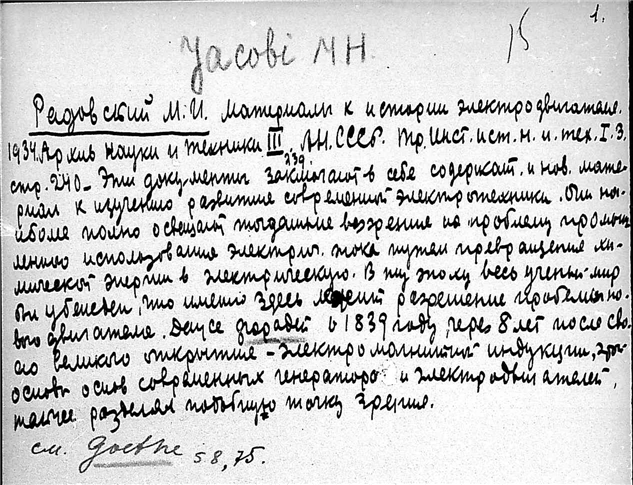 15 1.
Jасовi МН.
Радовский М.И. Материалы к истории электродвигателя.
1934. Архив науки и техники III. АН. СССР. Тр. Инст. ист. н. и. тех. I. 3.
стр. 240- 239. Эти документы заключают в себе содержат. и нов. мате-
риал к изучению развития современной электротехники. Они на-
иболе полно освещают тогдашние воззрения на проблему промыш-
ленного использования электрич. тока путем превращения хи-
мической энергии в электрическую. В ту эпоху весь ученый мир
был убежден, что именно здесь лежит разрешение проблемы но-
вого двигателя. Даусе фарадей в 1839 году, через 8 лет после сво-
его великого открытие - электромагнитной индукции, этой
основы основ современных генераторов и электродвигателей,
также разделял подобную точку зрения.
см. Goethe 58,75.